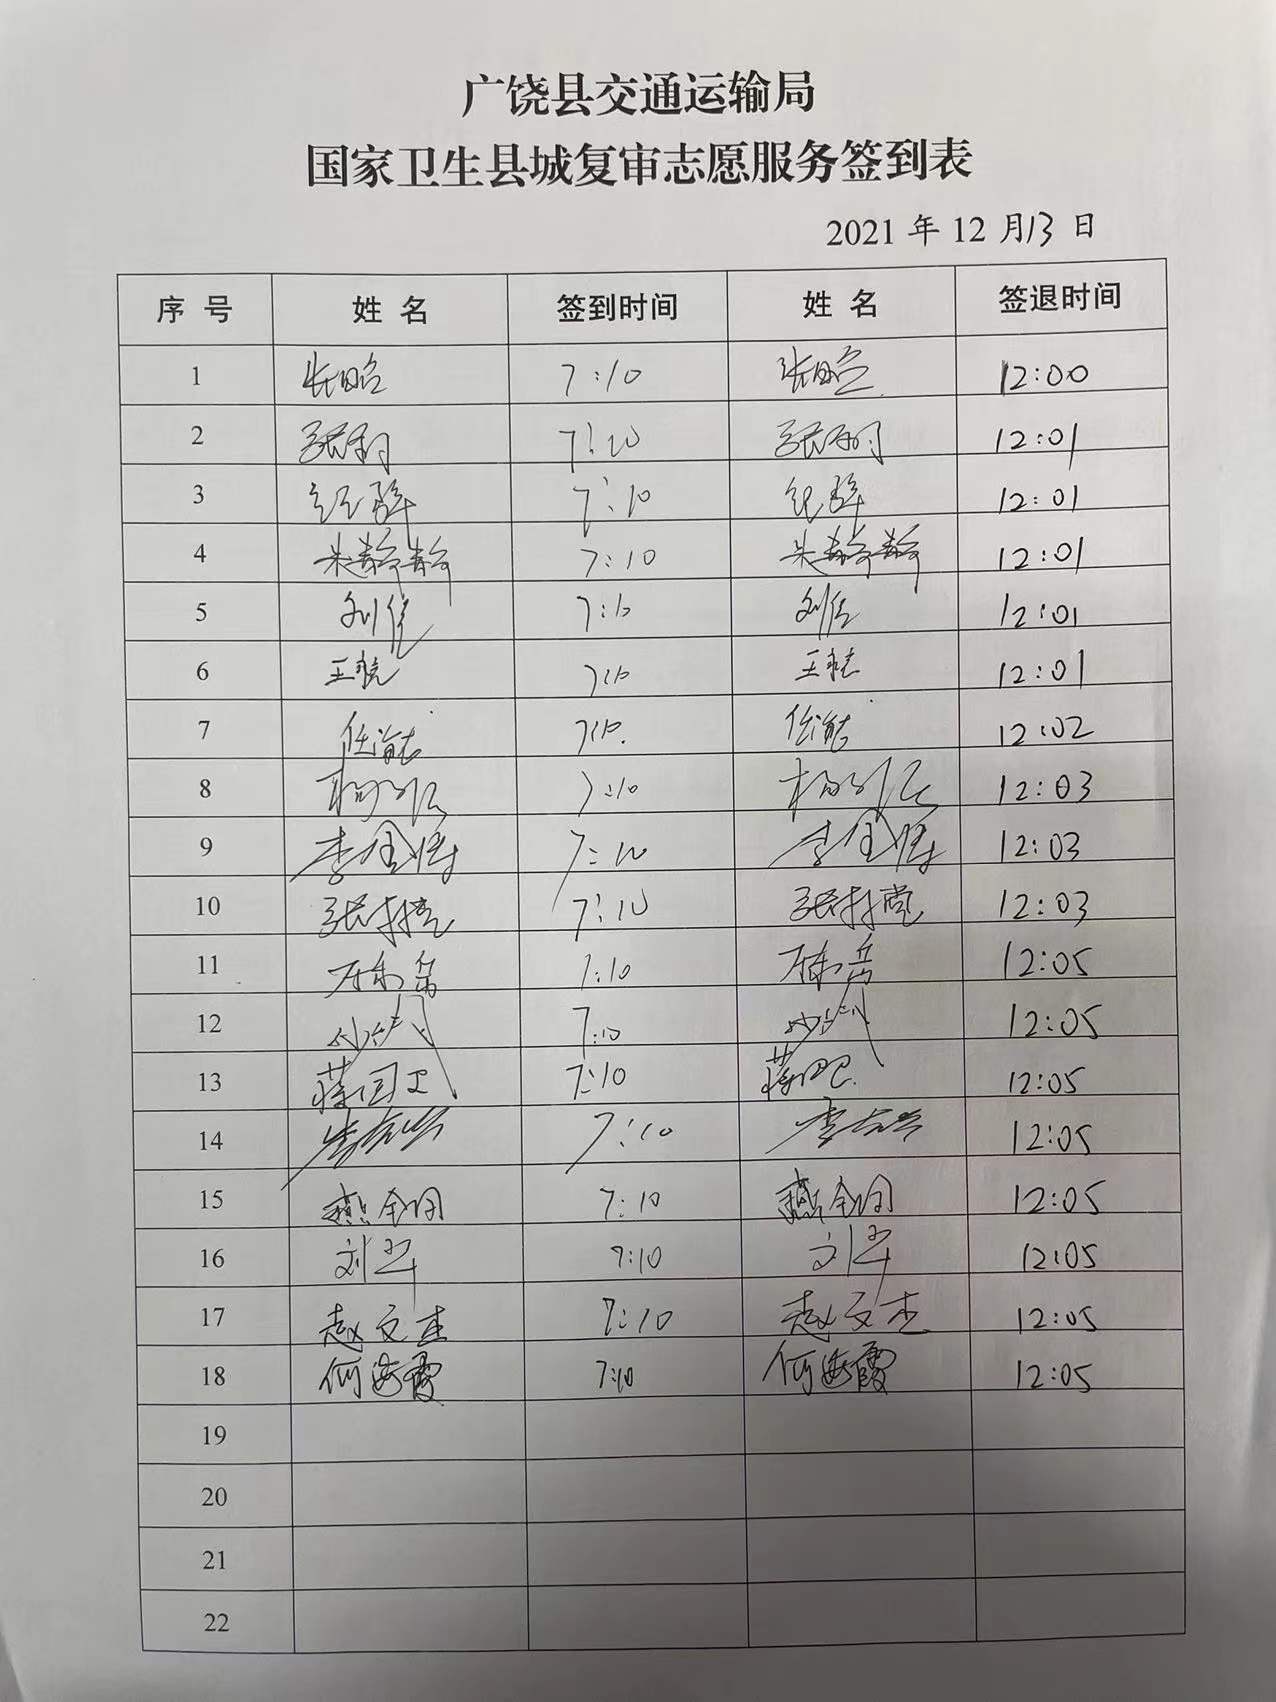 广饶县交通运输局
国家卫生县城复审志愿服务签到表
2021 年 12 月 13 日
序 号 姓 名 签到时间 姓 名 签退时间
1 张昭 7:10 张昭 12:00
2 张莉 7:10 张莉 12:01
3 纪骅 7:10 纪骅 12:01
4 朱龄龄 7:10 朱龄龄 12:01
5 刘佳 7:10 刘佳 12:01
6 王 7:10 王 12:01
7 任 7:10 任 12:02
8 杨 7:10 杨 12:03
9 李金 7:10 李金 12:03
10 张 7:10 张 12:03
11 7:10 12:05
12 7:10 12:05
13 蒋国卫 7:10 蒋国卫 12:05
14 李 7:10 李 12:05
15 燕金 7:10 燕金 12:05
16 刘 7:10 刘 12:05
17 赵文杰 7:10 赵文杰 12:05
18 何海霞 7:10 何海霞 12:05
19
20
21
22